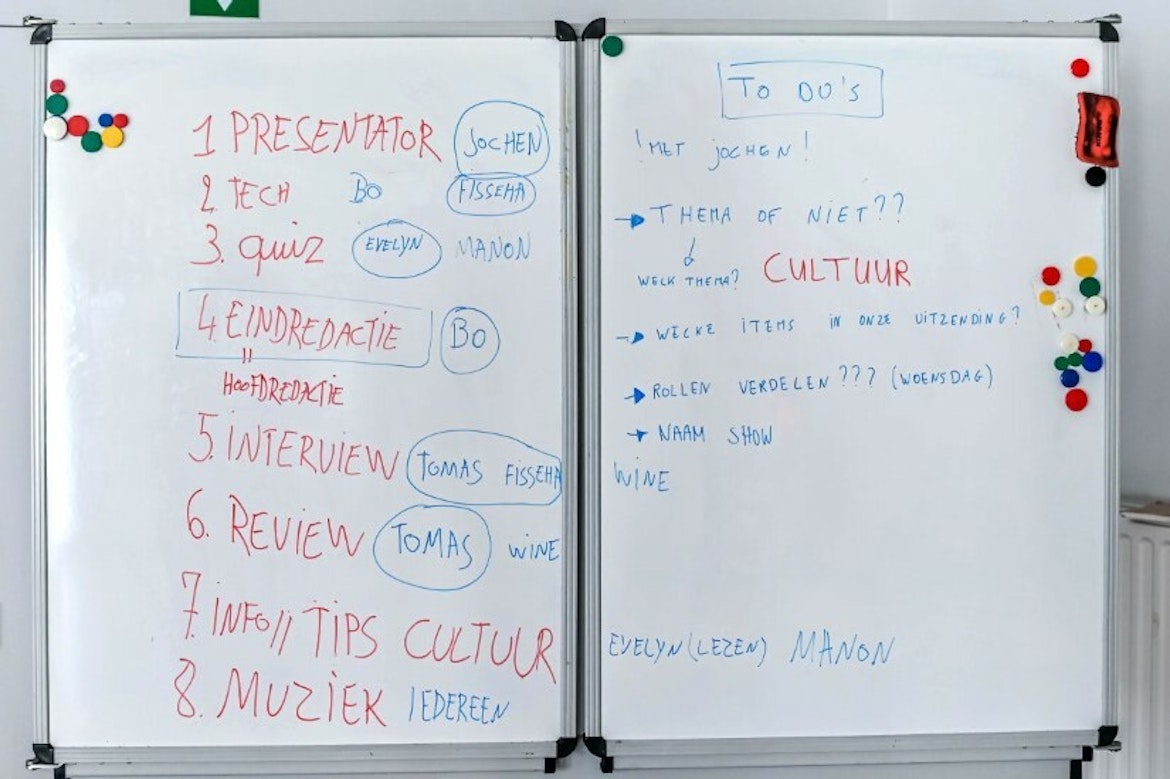 1 PRESENTATOR JOCHEN
2. TECH BO FISSEHA
3. QUIZ EVELYN MANON
4. EINDREDACTIE BO
"
HOOFDREDACTIE
5. INTERVIEW TOMAS FISSEHA
6. REVIEW TOMAS WINE
7. INFO // TIPS CULTUUR
8. MUZIEK IEDEREEN
TO DO'S
! MET JOCHEN !
→ THEMA OF NIET??
↓
WELK THEMA? CULTUUR
→ WELKE ITEMS IN ONZE UITZENDING?
→ ROLLEN VERDELEN ??? (WOENSDAG)
→ NAAM SHOW
WINE
EVELYN (LEZEN) MANON